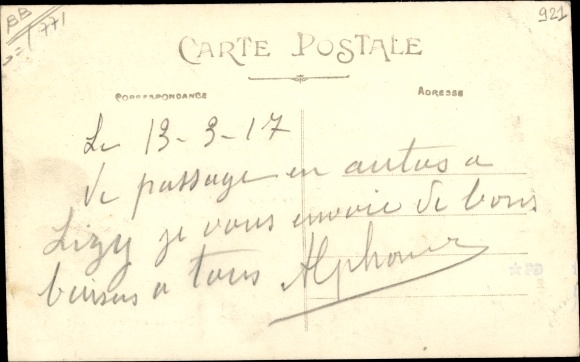 BB
771
921
CARTE POSTALE
CORRESPONDANCE
ADRESSE
Le 13-3-17
de passage en autos a
Lizy je vous envoie de bons
baisers a tous Alphonse